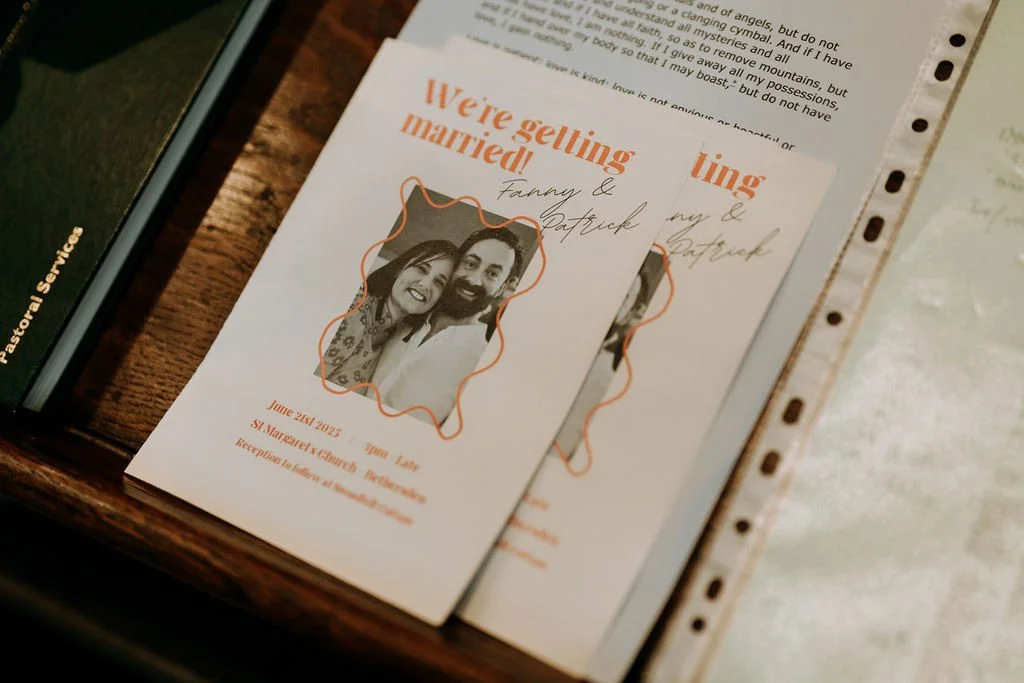 Pastoral Services
als and of angels, but do not
g or a clanging cymbal. And if I have
and understand all mysteries and all
and if I have all faith, so as to remove mountains, but
not have love, I am nothing. If I give away all my possessions,
and if I hand over my body so that I may boast, but do not have
love, I gain nothing.
Love is patient; love is kind; love is not envious or boastful or
We're getting
married!
Fanny &
Patrick
June 21st 2025 | 3pm Late
St Margaret's Church Bethersden
Reception to follow at
ting
ny &
Patrick
Late